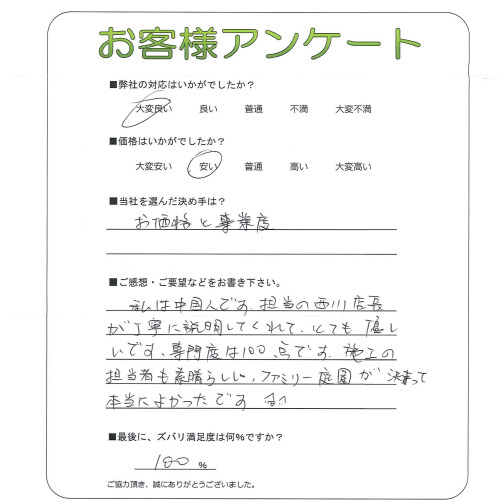 お客様アンケート
■弊社の対応はいかがでしたか？
大変良い 良い 普通 不満 大変不満
■価格はいかがでしたか？
大変安い 安い 普通 高い 大変高い
■当社を選んだ決め手は？
お価格と専業度
■ご感想・ご要望などをお書き下さい。
私は中国人です。担当の西川店長
が丁寧に説明してくれて、とても優し
いです、専門度は100点です。施工の
担当者も素晴らしい，ファミリー庭園が決まって
本当によかったです
■最後に、ズバリ満足度は何％ですか？
100 %
ご協力頂き、誠にありがとうございました。